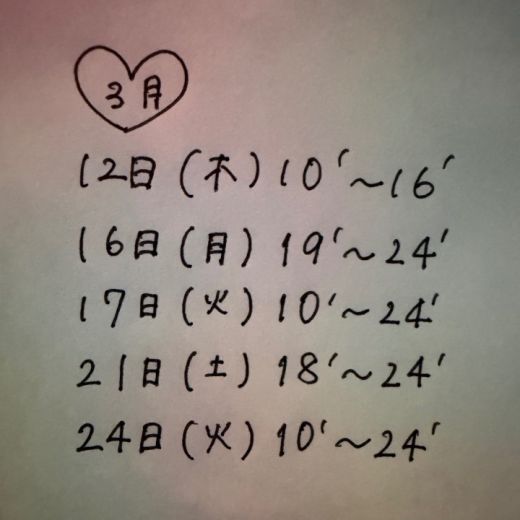 3月
12日(木)10'~16'
16日(月)19'~24'
17日(火)10'~24'
21日(土)18'~24'
24日(火)10'~24'